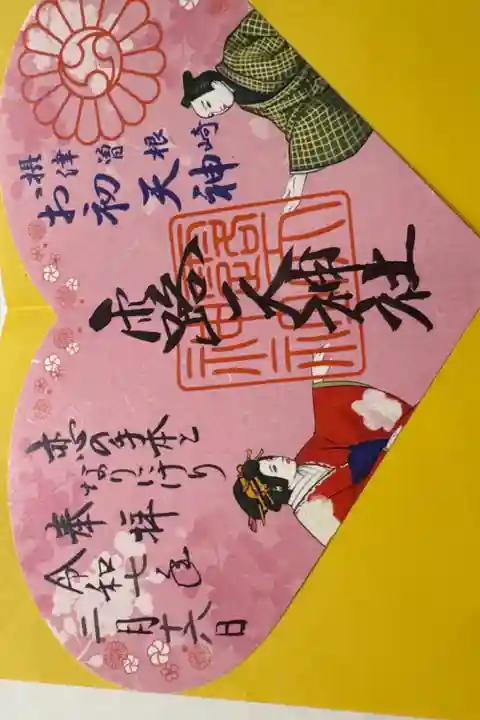 摂津曽根崎
お初天神
露天神社
恋の手本と
なりにけり
奉拝
令和七年
二月十六日